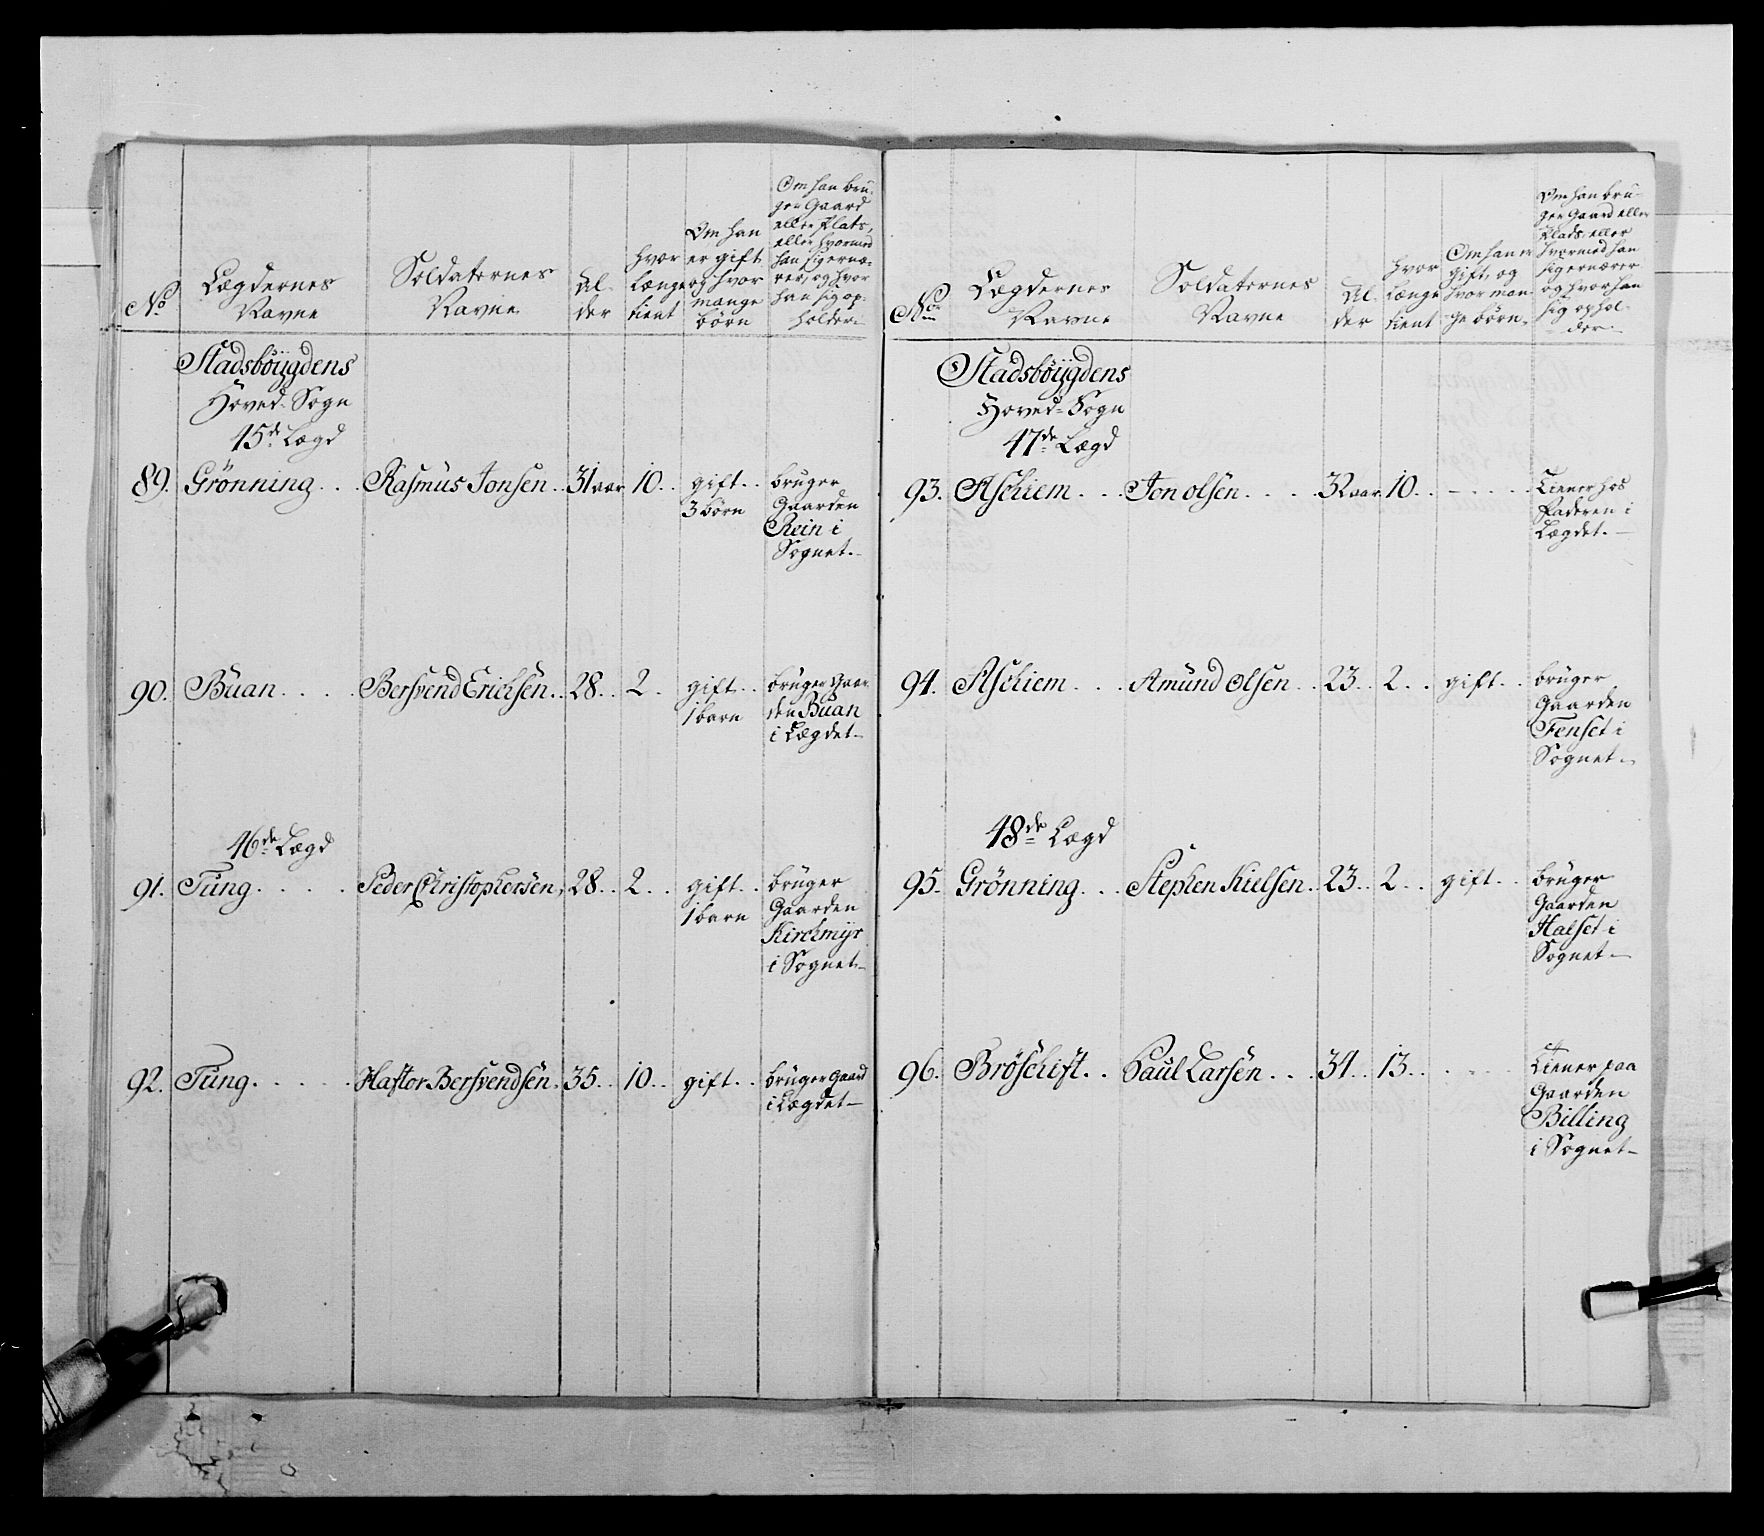 No
Lægdernes
Navne
Soldaternes
Navne
Al-
der
hvor
længe
tient
Om han
er gift
og hvor
mange
börn
Om han bru-
ger Gaard
eller Plats,
eller hvormed
han sig ernæ-
rer, og hvor
han sig op-
holder.
Stadsböygdens
Hoved-Sogn
45de Lægd
89. Grönning . . . Rasmus Jonsen . . 31 aar 10 . . gift . . bruger
3 börn Gaarden
Rein i
Sognet.
90. Buan . . . . Bersvend Erichsen . . 28 . . 2 . gift . . bruger Gaar
1 barn den Buan
i Lægdet
46de Lægd
91. Tung . . . . Peder Christophersen, 28 . . 2 . . gift . . bruger
1 barn Gaarden
Kirchmyr
i Sognet
92. Tung . . . . . Haftor Bersvendsen . 35 . . 10 . . gift . . bruger Gaard
i Lægdet
No
Lægdernes
Navne
Soldaternes
Navne
Al-
der
hvor
længe
tient
Om han er
gift, og
hvor man-
ge börn.
Om han bru-
ger Gaard eller
Plads, eller
hvormed han
sig ernærer
og hvor han
sig ophol-
der.
Stadsböygdens
Hoved-Sogn
47de Lægd
93. Aschiem . . . Jon Olsen . . . . 32 aar 10 . . - . . . . Tiener hos
Faderen i
Lægdet.
94. Aschiem . . . Amund Olsen . . 23 . . 2 . . gift . . bruger
Gaarden
Fenset i
Sognet
48de Lægd
95. Grönning . . . Stephen Nielsen . . 23 . . 2 . . gift . . bruger
Gaarden
Halset i
Sognet
96. Bröschift . . Paul Larsen . . . 34 . . 13 . . . . . . Tiener paa
Gaarden
Billing
i Sognet